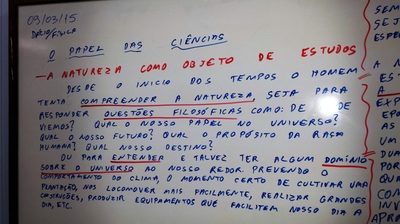 09/03/15
DÉCIO/FÍSICA
O PAPEL DAS CIÊNCIAS
- A NATUREZA COMO OBJETO DE ESTUDOS
DESDE O INICIO DOS TEMPOS O HOMEM
TENTA COMPREENDER A NATUREZA, SEJA PARA
RESPONDER QUESTÕES FILOSÓFICAS COMO: DE DE
VIEMOS? QUAL O NOSSO PAPEL NO UNIVERSO?
QUAL O NOSSO FUTURO? QUAL O PROPÓSITO DA RAÇA
HUMANA? QUAL NOSSO DESTINO?
OU PARA ENTENDER E TALVEZ TER ALGUM DOMÍNIO
SOBRE O UNIVERSO AO NOSSO REDOR. PREVENDO O
COMPORTAMENTO DO CLIMA, O MOMENTO CERTO DE CULTIVAR UMA
PLANTAÇÃO, NOS LOCOMOVER MAIS FACILMENTE, REALIZAR GRANDES
CONSTRUÇÕES, PRODUZIR EQUIPAMENTOS QUE FACILITEM NOSSO DIA A
DIA, ETC.
SEM
SEJ
ESPE
A N
EST
A
EXP
EPO
AS
UM
DUA
POR
QUA
CO
INV
PRI